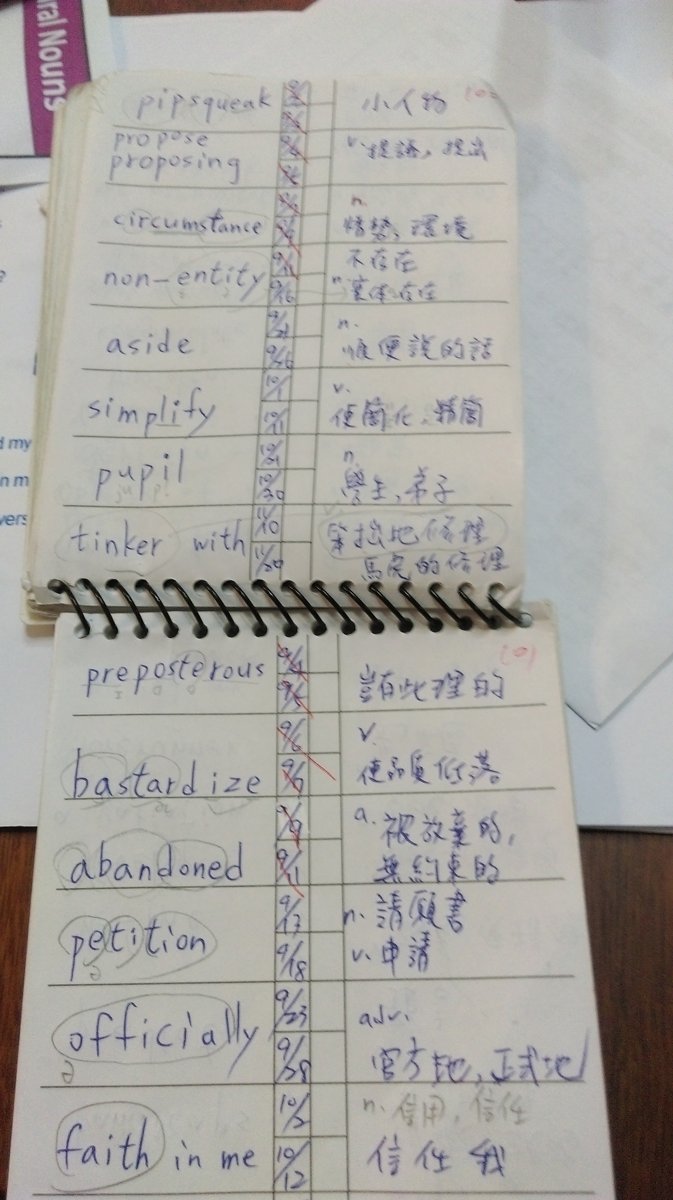 ral Nouns
d my
n m
vers
pipsqueak
小人物
propose
proposing
v. 提議, 提出
circumstance
n.
情勢, 環境
non-entity
9/11
9/16
不存在
n. 實体, 存在
aside
9/21
9/26
n.
順便說的話
simplify
10/1
10/11
v.
使簡化, 精簡
pupil
10/21
10/30
n.
學生, 弟子
tinker with
11/10
11/29
笨拙地修理
馬虎的修理
preposterous
豈有此理的
bastardize
9/6
9/7
v.
使品質低落
abandoned
9/9
9/11
a. 被放棄的,
無約束的
petition
9/13
9/18
n. 請願書
v. 申請
officially
9/23
9/28
adv.
官方地, 正式地
faith in me
10/2
10/12
n. 信用, 信任
信任我